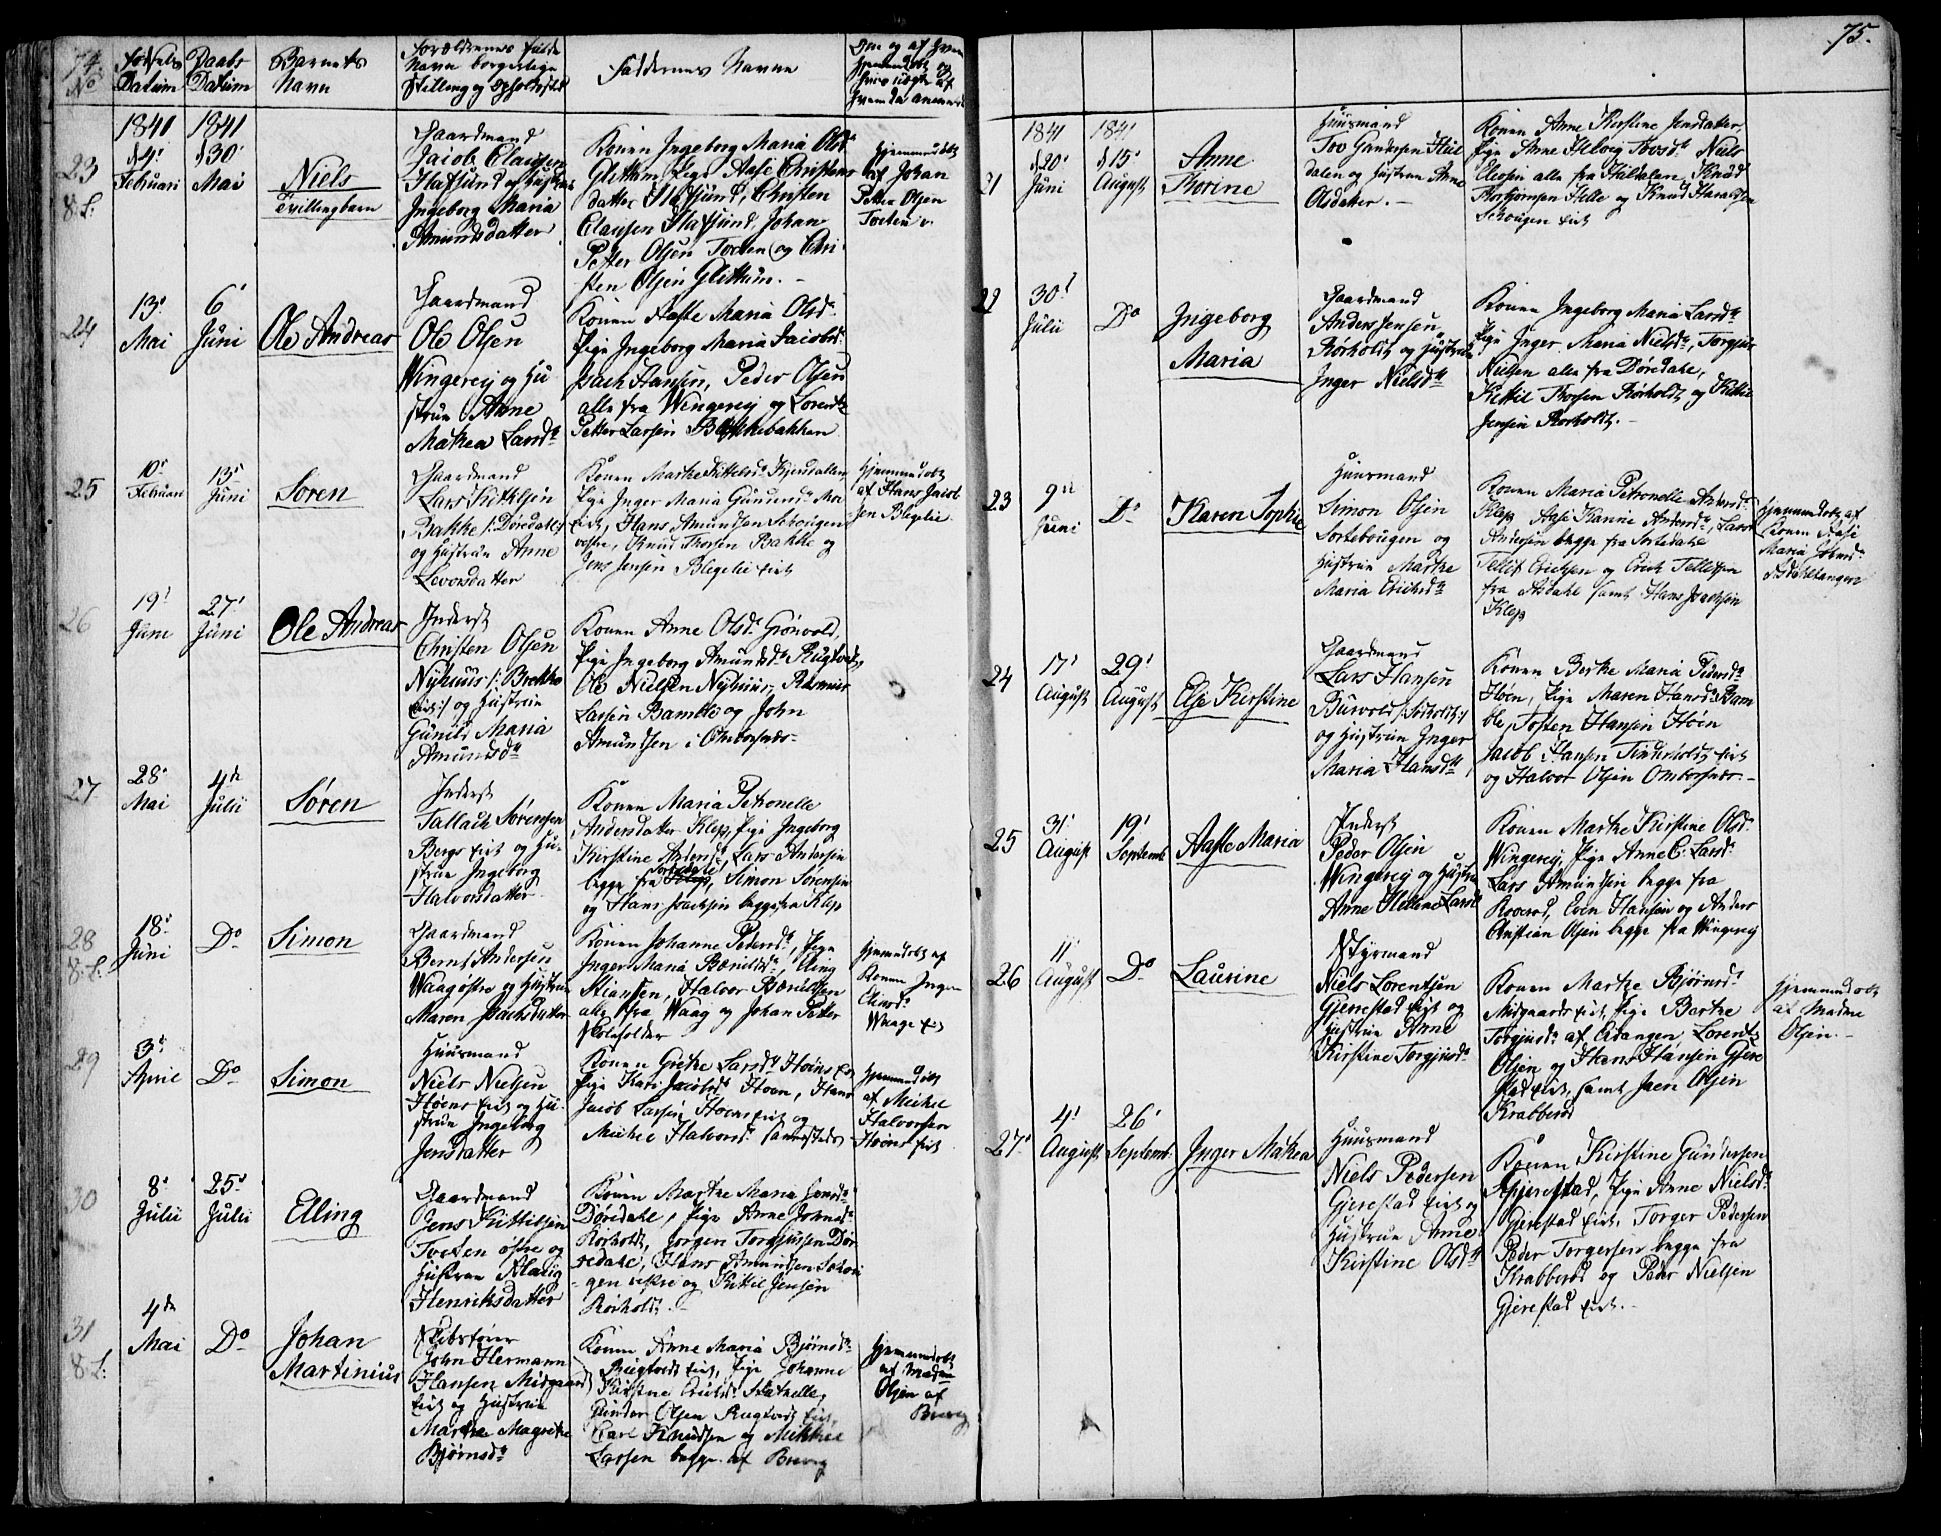 74.
No
Fødsels
Datum
Daabs
Datum
Barnets
Navn
Forældrenes fulde
Navn borgerlige
Stilling og Opholdsted
Faddernes Navne
23
8.
1841
d 4'
Februari
1841
d 30'
Mai
Niels
Tvillingbarn
Gaardmand
Jacob Clausen
Hafsund og Hustrue
Ingeborg Maria
Amundsdatter
Konen Ingeborg Maria Olsd.
Glittum, Pige Aase Christens
datter Hafsund, Christen
Clausen Hafsund, Johan
Petter Olsen Tveten og Chri-
sten Olsen Glittum. -
hjemmedøbt
af Johan
Petter Olsen
Tveten
24
13'
Mai
6'
Juni
Ole Andreas
Gaardmand
Ole Olsen
Wingereij og Hu
strue Anne
Mathea Larsd.
Konen Aaste Maria Olsd.
Pige Ingeborg Maria Jacobsd.
Isach Hansen, Peder Olsen
alle fra Wingereij og Lorentz
Petter Larsen Blekkebakken
25
10'
Februari
13'
Juni
Søren
Gaardmand
Lars Kittilsen
Bakke /: Døredahl :/
og Hustrue Anne
Levorsdatter
Konen Marthe Kittelsd. Kjendallen
Pige Inger Maria Gunundsd.
Hans Amundsen Schougen
vestre, Knud Thorsen Bakke og
Jens Jensen Blegelie Eiet
hjemmedøbt
af Hans Jacob-
sen Blegelie
26
19'
Juni
27'
Juni
Ole Andreas
Inderst
Christen Olsen
Nyhuus /: Brekke
Eiet :/ og Hustrue
Gunild Maria
Amundsd.
Konen Anne Olsd. Grønvold,
Pige Ingeborg Amundsd. Rugtvedt,
Ole Nielsen Nyhuus, Rasmus
Larsen Bamble og John
Amundsen i Ombordsnes -
27
28'
Mai
4de
Julii
Søren
Inderst
Tallach Sørensen
Bergs Eiet og Hu-
strue Ingeborg
Halvorsdatter
Konen Maria Petronelle
Andersdatter Klep, Pige Ingeborg
Kirstine Andersd. Lars Andersen
begge fra Sortedahl, Simon Sørensen
og Hans Isachsen begge fra Klep
28
8.
18'
Juni
Do
Simon
Gaardmand
Bernt Andersen
Waag østre og Hustrue
Maren Isachsdatter
Konen Johanne Pedersd., Pige
Inger Maria Berntsd., Elling
Stiansen, Halvor Berntsen
alle fra Waag og Johan Petter
Skoleholder
hjemmedøbt af
Konen Inger
Waage Eiet
29
3'
April
Do
Simon
Huusmand
Niels Nielsen
Høens Eiet og Hu-
strue Ingeborg
Jensdatter
Konen Grethe Larsd. Høens Eie
Pige Kari Jacobsd. Hoen, Hans
Jacob Larsen Hoens Eiet og
Mickel Halvorsd. sammesteds
hjemmedøbt
af Mickel
Halvorsen
Høens Eiet
30
8'
Julii
25'
Julii
Elling
Gaardmand
Jens Kittilsen
Tveten østre og
Hustrue Alavig
Henriksdatter
Konen Marthe Maria Jensd.
Døredahl, Pige Anne Johnsd.
Rørholdt, Jørgen Torgjussen Dør
redahl, Hans Amundsen Schou
gen vestre og Kittil Jensen
Rørholdt. -
31
8.
4de
Mai
Do
Johan
Martinius
Skibsfører
John Hermann
Hansen Midgaards
Eiet og Hustrue
Marthe Magrethe
Bjørnsd.
Konen Anne Maria Bjørnsd.
Rugtvedt Eiet, Pige Johanne
Kirstine Erichsd. Stathelle,
Gunder Olsen Rugtvedt Eiet,
Carl Knudsen og Mikkel
Larsen begge af Brevig
hjemmedøbt
af Madme
Olsen af
Brevig
75.
21
1841
d 20'
Juni
1841
d 15'
August
Anne
Thorine
Huusmand
Tov Gundersen Hiel
dalen og Hustrue Anne
Olsdatter. -
Konen Anne Kirstine Jensdatter,
Pige Anne Helvig Tovsd. Niels
Elevsen alle fra Hildalen, Knud
Thorbjørnsen Helle og Knud Haraldsen
Schougen Eiet
22
30'
Julii
Do
Ingeborg
Maria
Gaardmand
Anders Jensen
Rørholdt og Hustrue
Inger Nielsd.
Konen Ingeborg Maria Larsd.
Pige Inger Maria Nielsd., Torgius
Nielsen alle fra Døredahl,
Kittil Thorsen Rørholdt og Kittil
Jensen Rørholdt. -
23
9de
Juni
Do
Karen Sophie
Huusmand
Simon Olsen
Sortebougen og
Hustrue Marthe
Maria Erichsd.
Konen Maria Petronelle Andersd.
Klep Aase Karine Andersd., Lars
Andersen begge fra Sortedahl
Tellif Erichsen og Erich Tellifsen
fra Asdahl samt Hans Isachsen
Klep
hjemmedøbt af
Konen Aase
Maria
Asdahltangen
24
17'
August
29'
August
Else Kirstine
Gaardmand
Lars Hansen
Buevold /: Søeholdt :/
og Hustrue Inger
Maria Hansd.
Konen Berthe Maria Pedersd.
Høen, Pige Maren Hansd. Bam
ble, Tosten Hansen Høen
Jacob Hansen Tinderholdt Eiet
og Halvor Olsen Ombordsnes. -
25
31'
August
19'
Septemb
Aaste Maria
Inderst
Peder Olsen
Wingereij og Hustrue
Anne Hellene Larsd.
Konen Marthe Kirstine Olsd.
Wingereij, Pige Anne C. Larsd.
Lars Amundsen begge fra
Roverød, Even Hansen og Anders
Christian Olsen begge fra Wingereij
26
11'
August
Do
Laurine
Styrmand
Niels Lorentsen
Gjerestad Eiet og
Hustrue Anne
Kirstine Torgjusd.
Konen Marthe Bjørnsd.
Midgaards Eiet, Pige Barthe
Torgjusd. af Eidanger, Lorentz
Olsen og Hans Hansen Gjere
stad Eiet, samt Jaen Olsen
Krabberød
hjemmedøbt
af Madme
Olsen. -
27
4'
August
26'
Septemb.
Inger Mathea
Huusmand
Niels Pedersen
Gjerestad Eiet og
Hustrue Anne
Kirstine Olsd.
Konen Kirstine Gundersen
Gjerestad, Pige Anne Nielsd.
Gjerestad Eiet. Torger Pedersen
Peder Torgersen begge fra
Krabberød og Peder Nielsen
Gjerestad Eiet. -